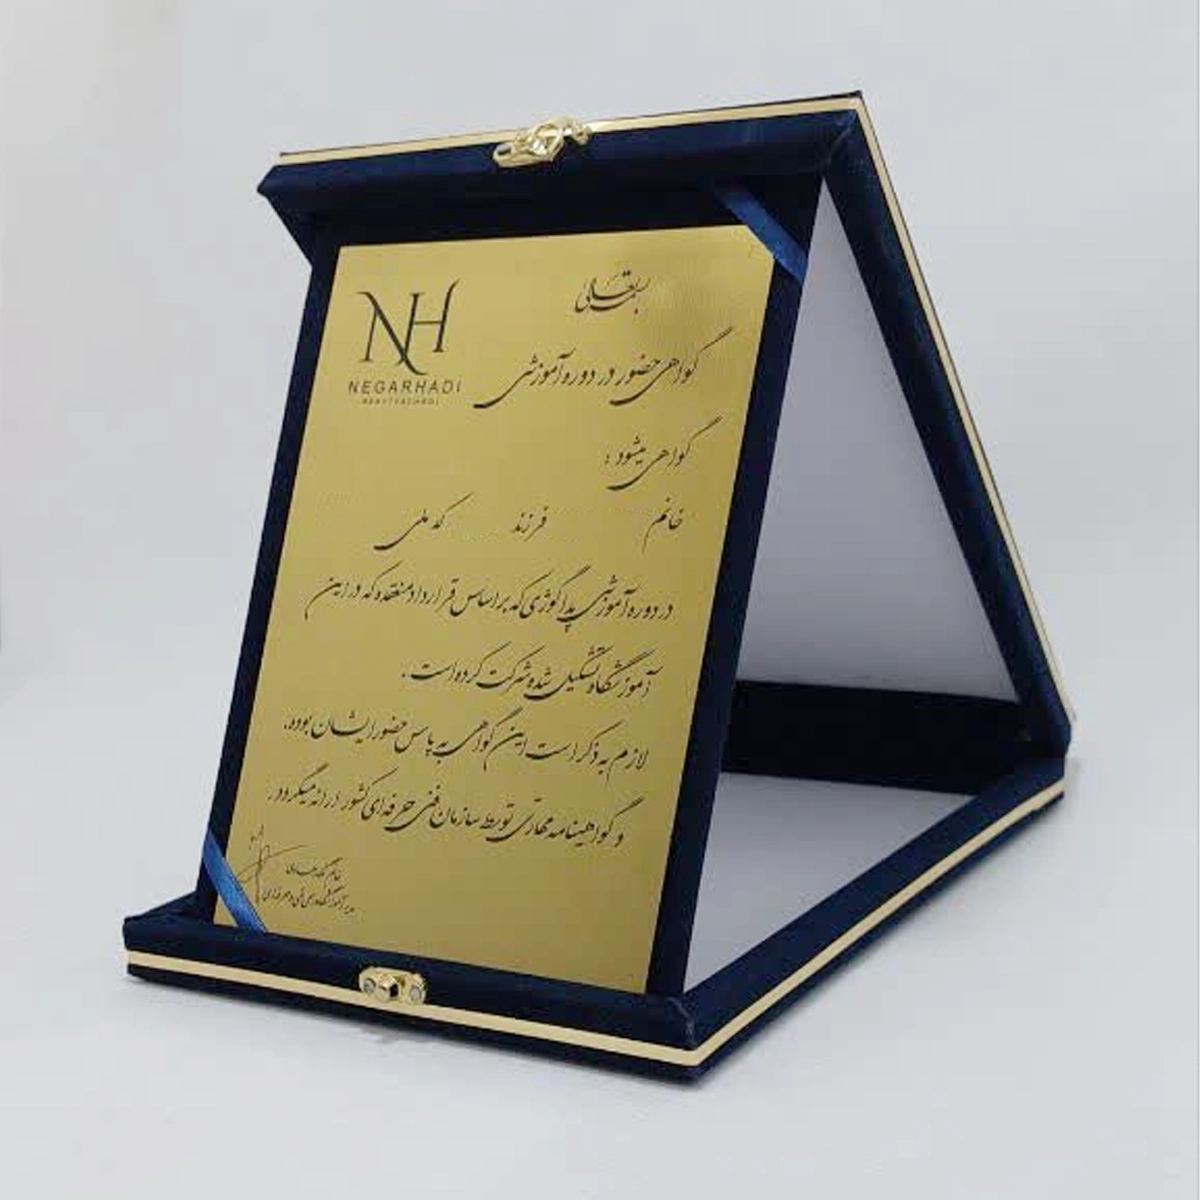 بسمه تعالی
NH
NEGARHADI
BEAUTY SCHOOL
گواهی حضور در دوره آموزشی
گواهی میشود :
خانم فرزند کد ملی
در دوره آموزشی پداگوژی که بر اساس قرارداد منعقده که در این
آموزشگاه تشکیل شده شرکت کرده است .
لازم به ذکر است این گواهی به پاس حضور ایشان بوده .
و گواهینامه مهارتی توسط سازمان فنی حرفه ای کشور ارائه میگردد .
خانم نگار هادی